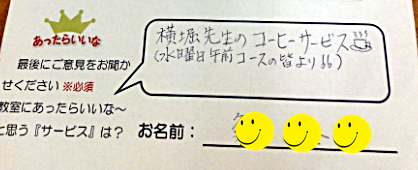 あったらいいな
最後にご意見をお聞か
せください ※必須
教室にあったらいいな～
と思う『サービス』は？
横堀先生のコーヒーサービス
(水曜日午前コースの皆より!!)
お名前：